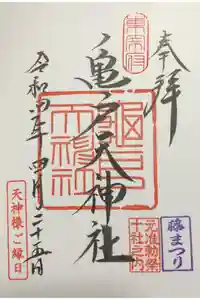 奉拝
東宰府
亀戸天神社
令和 年四月二十五日
藤まつり
元准勅祭
十社之内
天神様ご縁日